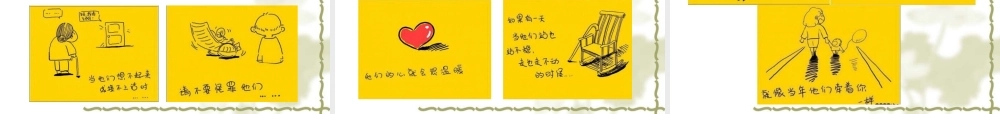 当他们想不起来
或接不上话时
......
请不要怪罪他们
... ...
他们的心就会很温暖
如果有一天
当他们站也
站不稳,
走也走不动
的时候...
就像当年他们牵着你
一样......